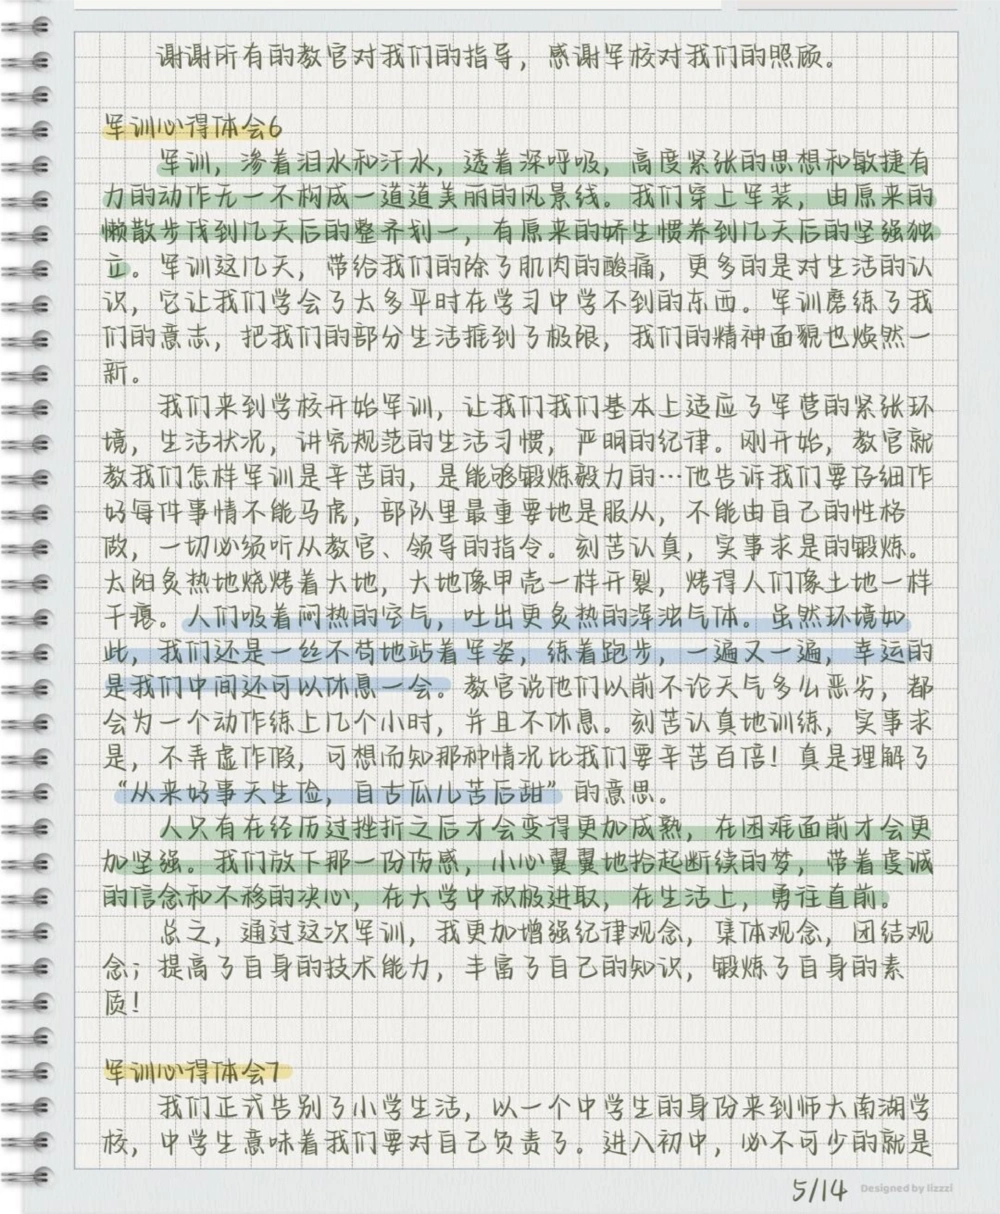 谢谢所有的教官对我们的指导，感谢军校对我们的照顾。
军训心得体会6
军训，渗着泪水和汗水，透着深呼吸，高度紧张的思想和敏捷有
力的动作无一不构成一道道美丽的风景线。我们穿上军装，由原来的
懒散步伐到几天后的整齐划一，有原来的娇生惯养到几天后的坚强独
立。军训这几天，带给我们的除了肌肉的酸痛，更多的是对生活的认
识，它让我们学会了太多平时在学习中学不到的东西。军训磨练了我
们的意志，把我们的部分生活推到了极限，我们的精神面貌也焕然一
新。
我们来到学校开始军训，让我们我们基本上适应了军营的紧张环
境，生活状况，讲究规范的生活习惯，严明的纪律。刚开始，教官就
教我们怎样军训是辛苦的，是能够锻炼毅力的…他告诉我们要仔细作
好每件事情不能马虎，部队里最重要地是服从，不能由自己的性格
做，一切必须听从教官、领导的指令。刻苦认真，实事求是的锻炼。
太阳炙热地烧烤着大地，大地像甲壳一样开裂，烤得人们像土地一样
干瘪。人们吸着闷热的空气，吐出更炙热的浑浊气体。虽然环境如
此，我们还是一丝不苟地站着军姿，练着跑步，一遍又一遍，幸运的
是我们中间还可以休息一会。教官说他们以前不论天气多么恶劣，都
会为一个动作练上几个小时，并且不休息。刻苦认真地训练，实事求
是，不弄虚作假，可想而知那种情况比我们要辛苦百倍！真是理解了
“从来好事天生俭，自古瓜儿苦后甜”的意思。
人只有在经历过挫折之后才会变得更加成熟，在困难面前才会更
加坚强。我们放下那一份伤感，小心翼翼地拾起断续的梦，带着虔诚
的信念和不移的决心，在大学中积极进取，在生活上，勇往直前。
总之，通过这次军训，我更加增强纪律观念，集体观念，团结观
念；提高了自身的技术能力，丰富了自己的知识，锻炼了自身的素
质！
军训心得体会7
我们正式告别了小学生活，以一个中学生的身份来到师大南湖学
校，中学生意味着我们要对自己负责了。进入初中，必不可少的就是
5/14
Designed by lizzzi